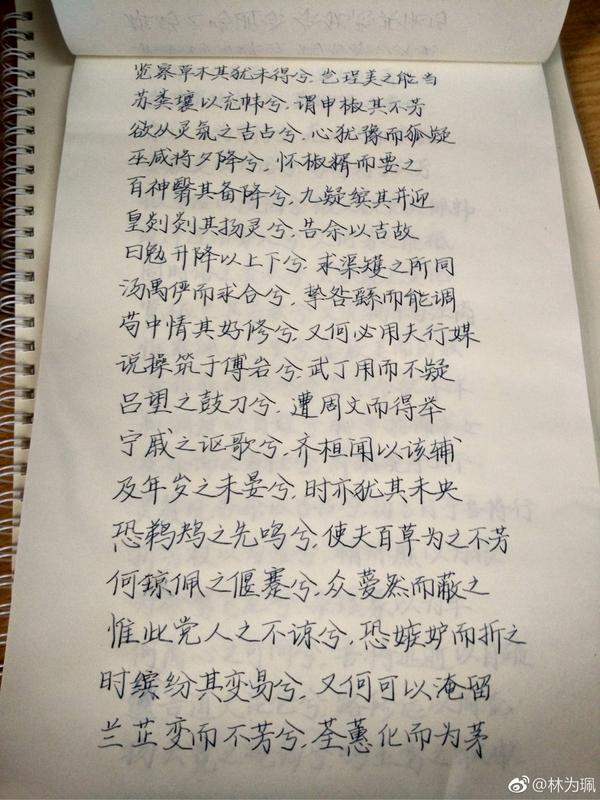 览察草木其犹未得兮,岂珵美之能当
苏粪壤以充帏兮,谓申椒其不芳
欲从灵氛之吉占兮,心犹豫而狐疑
巫咸将夕降兮,怀椒糈而要之
百神翳其备降兮,九疑缤其并迎
皇剡剡其扬灵兮,告余以吉故
曰勉升降以上下兮,求榘矱之所同
汤禹俨而求合兮,挚咎繇而能调
苟中情其好修兮,又何必用夫行媒
说操筑于傅岩兮,武丁用而不疑
吕望之鼓刀兮,遭周文而得举
宁戚之讴歌兮,齐桓闻以该辅
及年岁之未晏兮,时亦犹其未央
恐鹈鴂之先鸣兮,使夫百草为之不芳
何琼佩之偃蹇兮,众薆然而蔽之
惟此党人之不谅兮,恐嫉妒而折之
时缤纷其变易兮,又何可以淹留
兰芷变而不芳兮,荃蕙化而为茅
@林为珮